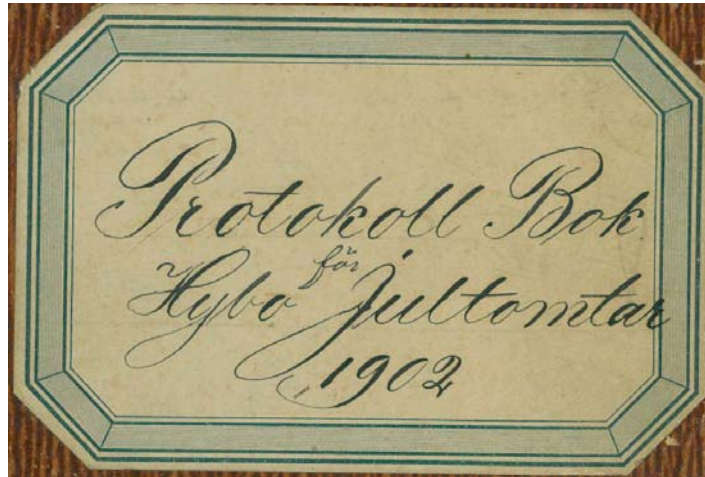 Protokoll Bok
för
Hybo Jultomtar
1902